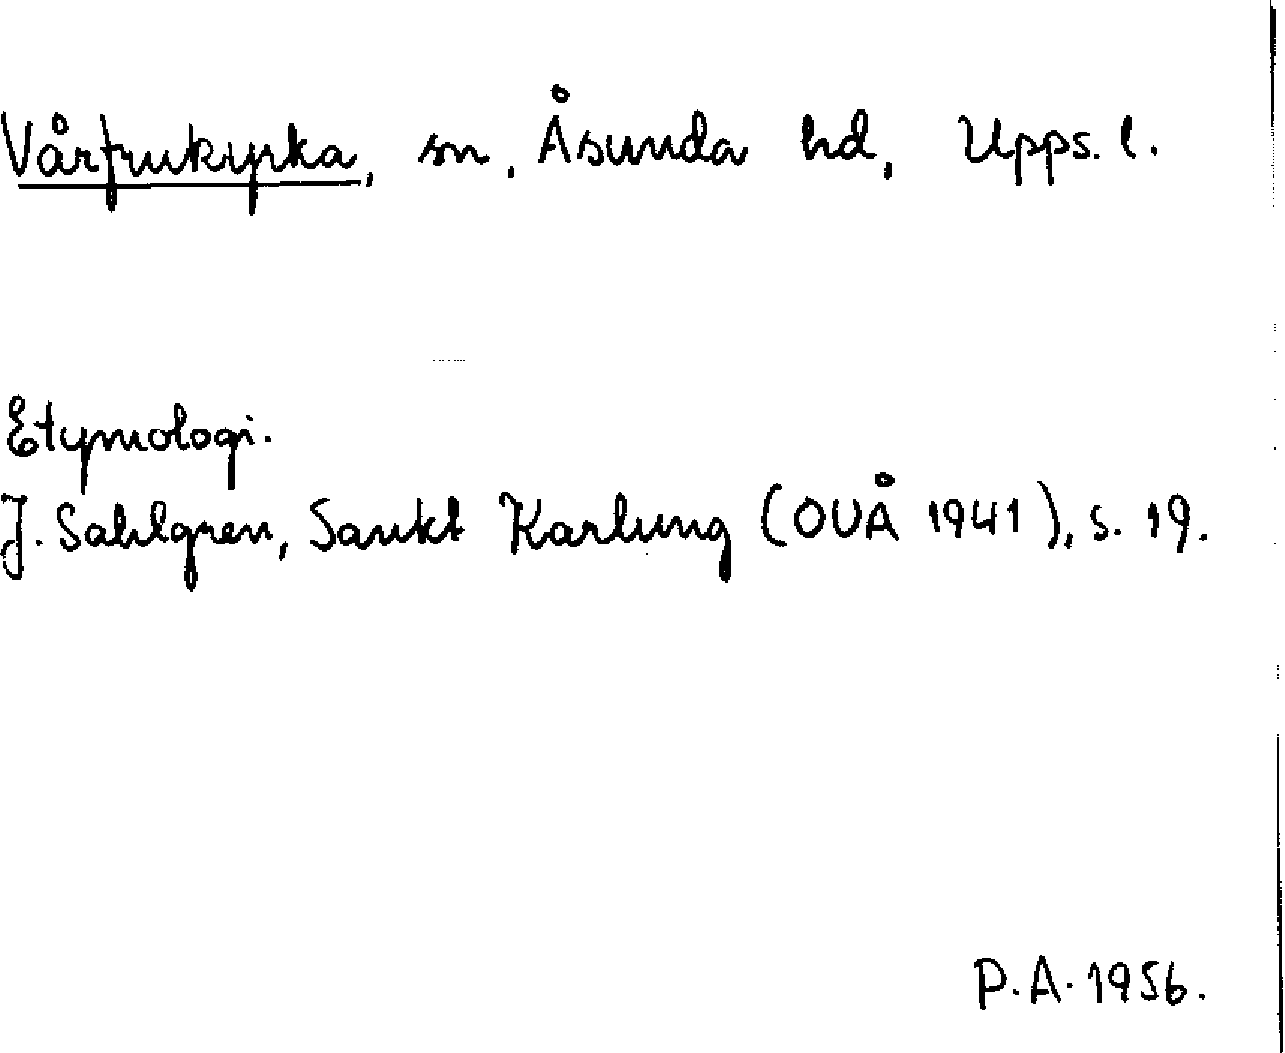 Vårfrukyrka, sn, Åsunda hd, Upps. l.
Etymologi.
J. Sahlgren, Sankt Karlung (OUÅ 1941), s. 19.
P.A. 1956.